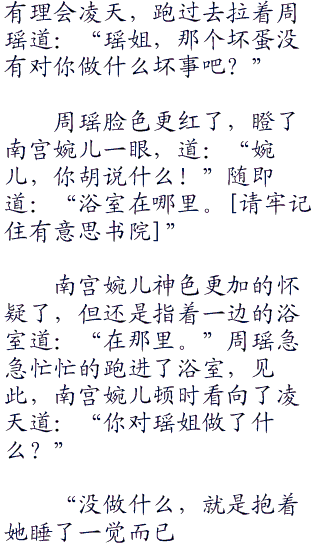 有理会凌天，跑过去拉着周
瑶道：“瑶姐，那个坏蛋没
有对你做什么坏事吧？”
周瑶脸色更红了，瞪了
南宫婉儿一眼，道：“婉
儿，你胡说什么！”随即
道：“浴室在哪里。[请牢记
住有意思书院]”
南宫婉儿神色更加的怀
疑了，但还是指着一边的浴
室道：“在那里。”周瑶急
急忙忙的跑进了浴室，见
此，南宫婉儿顿时看向了凌
天道：“你对瑶姐做了什
么？”
“没做什么，就是抱着
她睡了一觉而已